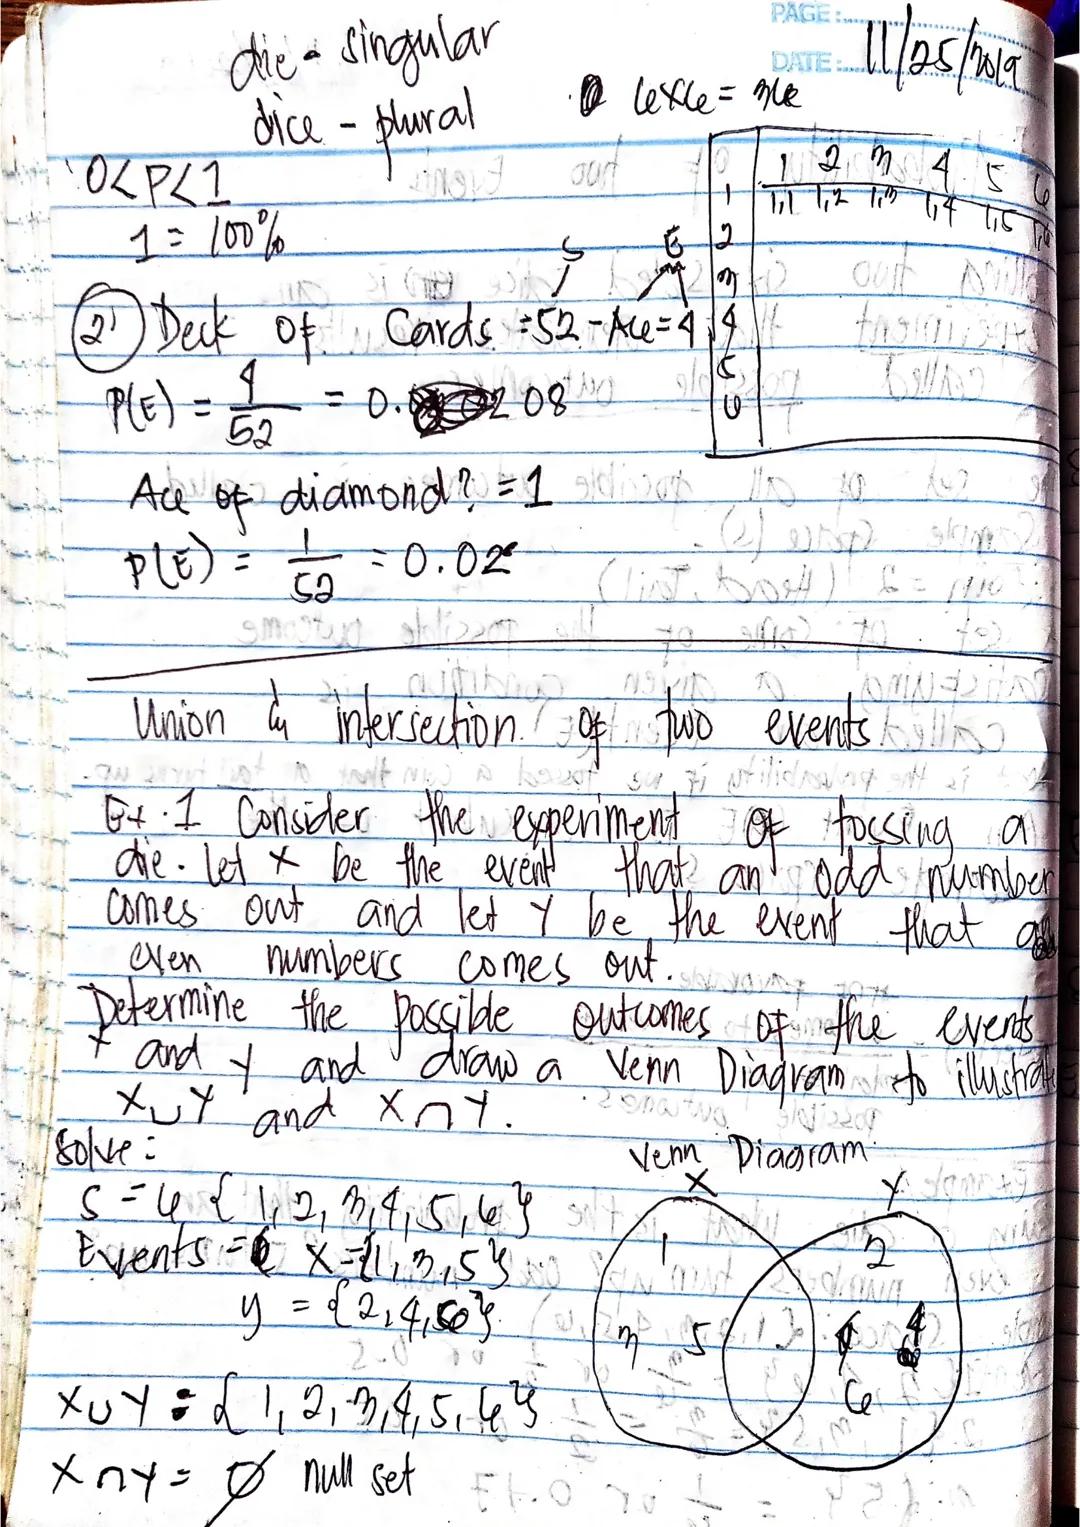 PAGE:
DATE: 11/25/2019
die - singular
dice - plural
6x6 = 36
0<P<1
1 = 100%
1 2 3 4 5 6
1 1,1 1,2 1,3 1,4 1,5 1,6
2
3
4
5
6
S E
2 Deck of Cards = 52 - Ace = 4
P(E) = 4/52 = 0. 08
Ace of diamond? = 1
P(E) = 1/52 = 0.02
Union & intersection of two events
Ex. 1 Consider the experiment of tossing a
die. Let X be the event that an odd number
comes out and let Y be the event that a
even numbers comes out.
Determine the possible outcomes of the events
X and Y and draw a Venn Diagram to illustrate
X∪Y and X∩Y.
Solve:
S = 6 { 1, 2, 3, 4, 5, 6 }
Events = X = {1, 3, 5}
y = {2, 4, 6}
X∪Y = { 1, 2, 3, 4, 5, 6 }
X∩Y = ∅ null set
Venn Diagram
X Y
1 2
3 5 4
6